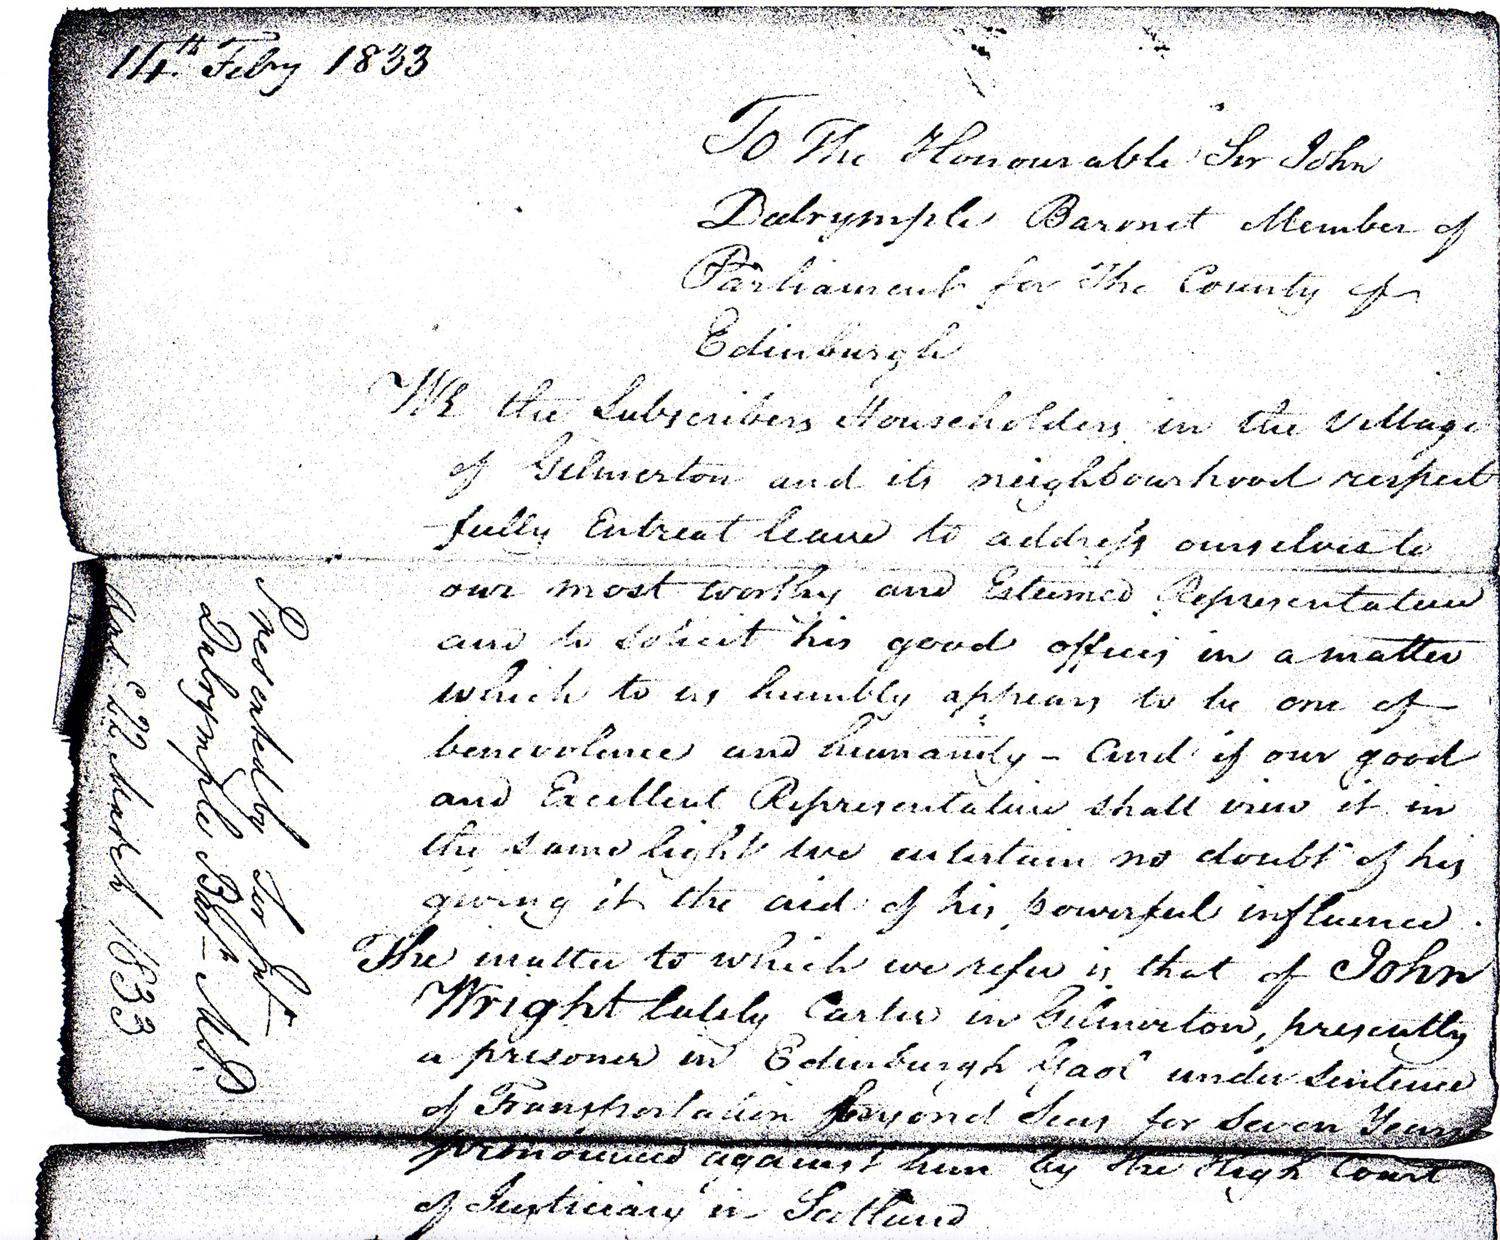 14th Feby 1833
To The Honourable Sir John
Dalrymple Baronet Member of
Parliament for The County of
Edinburgh
WE the Subscribers Householders in the Village
of Gilmerton and its neighbourhood respect
fully Entreat leave to address ourselves to
our most worthy and Esteemed Representative
and to solicit his good offices in a matter
which to us humbly appears to be one of
benevolence and humanity - And if our good
and Excellent Representative shall view it in
the same light we entertain no doubt of his
giving it the aid of his powerful influence.
The matter to which we refer is that of John
Wright lately Carter in Gilmerton, presently
a prisoner in Edinburgh Gaol under sentence
of Transportation beyond Seas for Seven Years
pronounced against him by the High Court
of Justiciary in Scotland
Presented by Sir
Dalrymple Bart - M.P.
22 March 1833